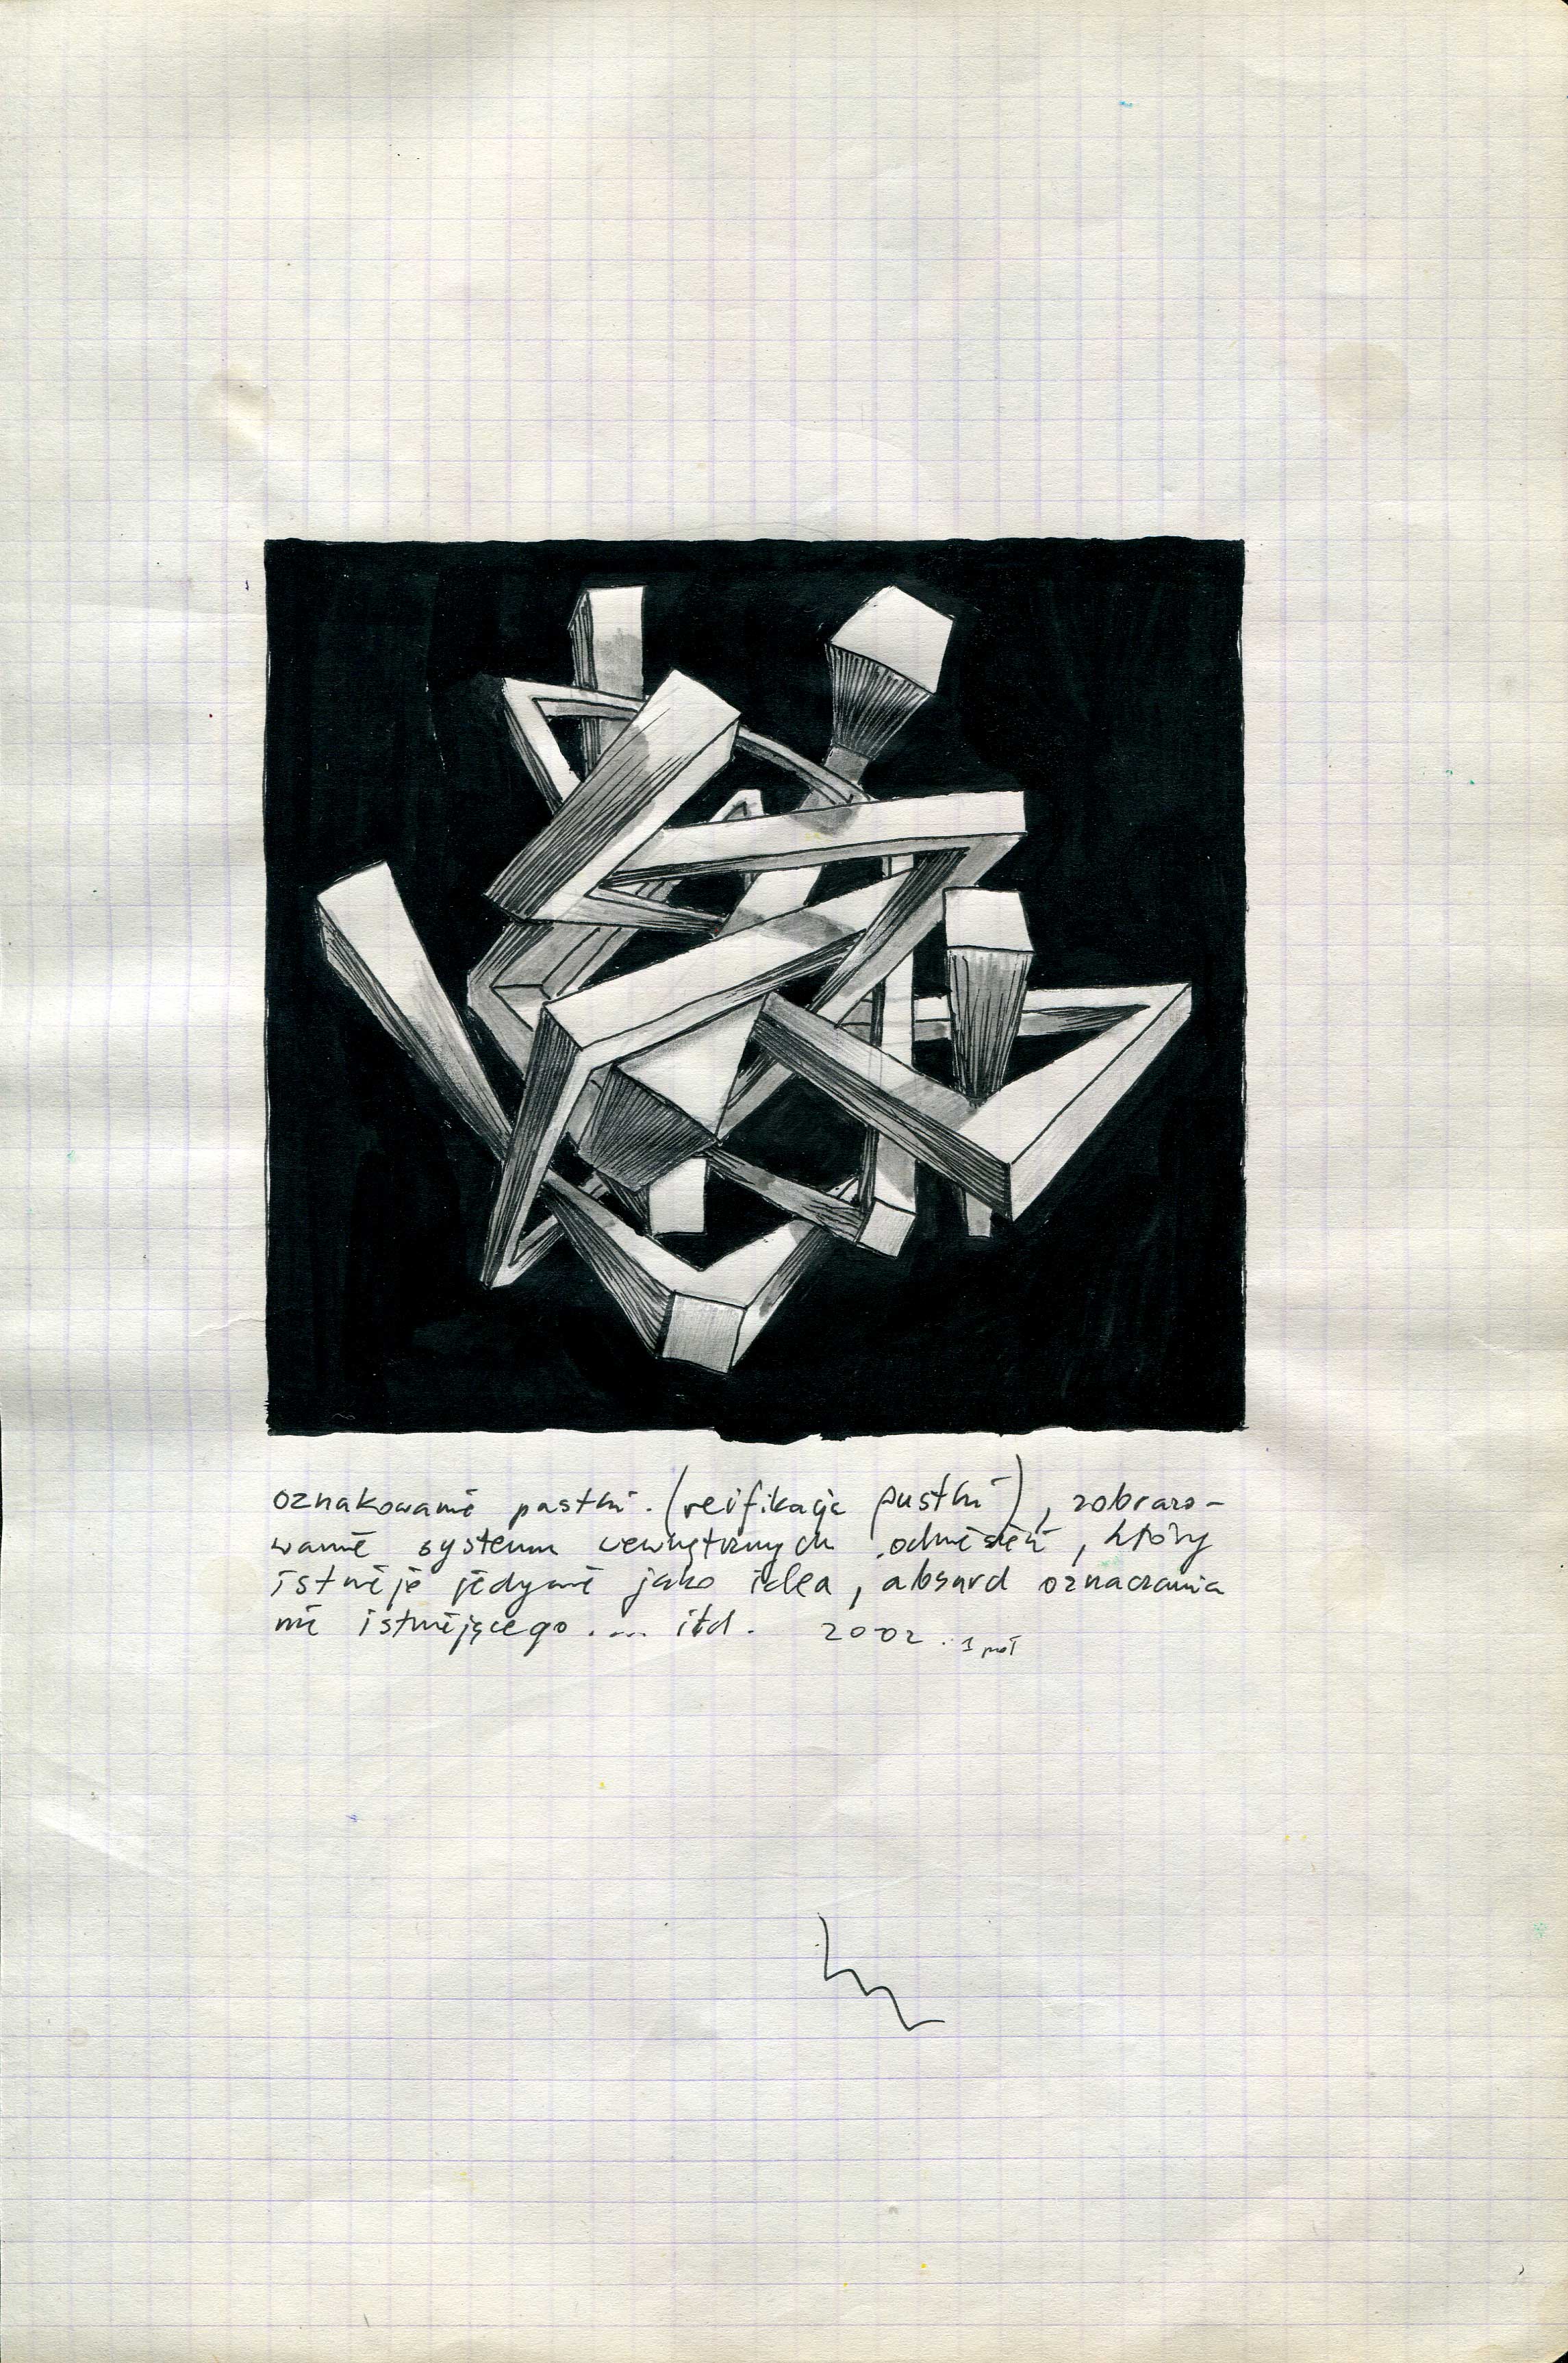 oznakowanie pustki. (reifikacja pustki), zobrazo-
wanie systemu wewnętrznych odniesień, który
istnieje jedynie jako idea, absurd oznaczania
nie istniejącego.... itd. 2002. 1